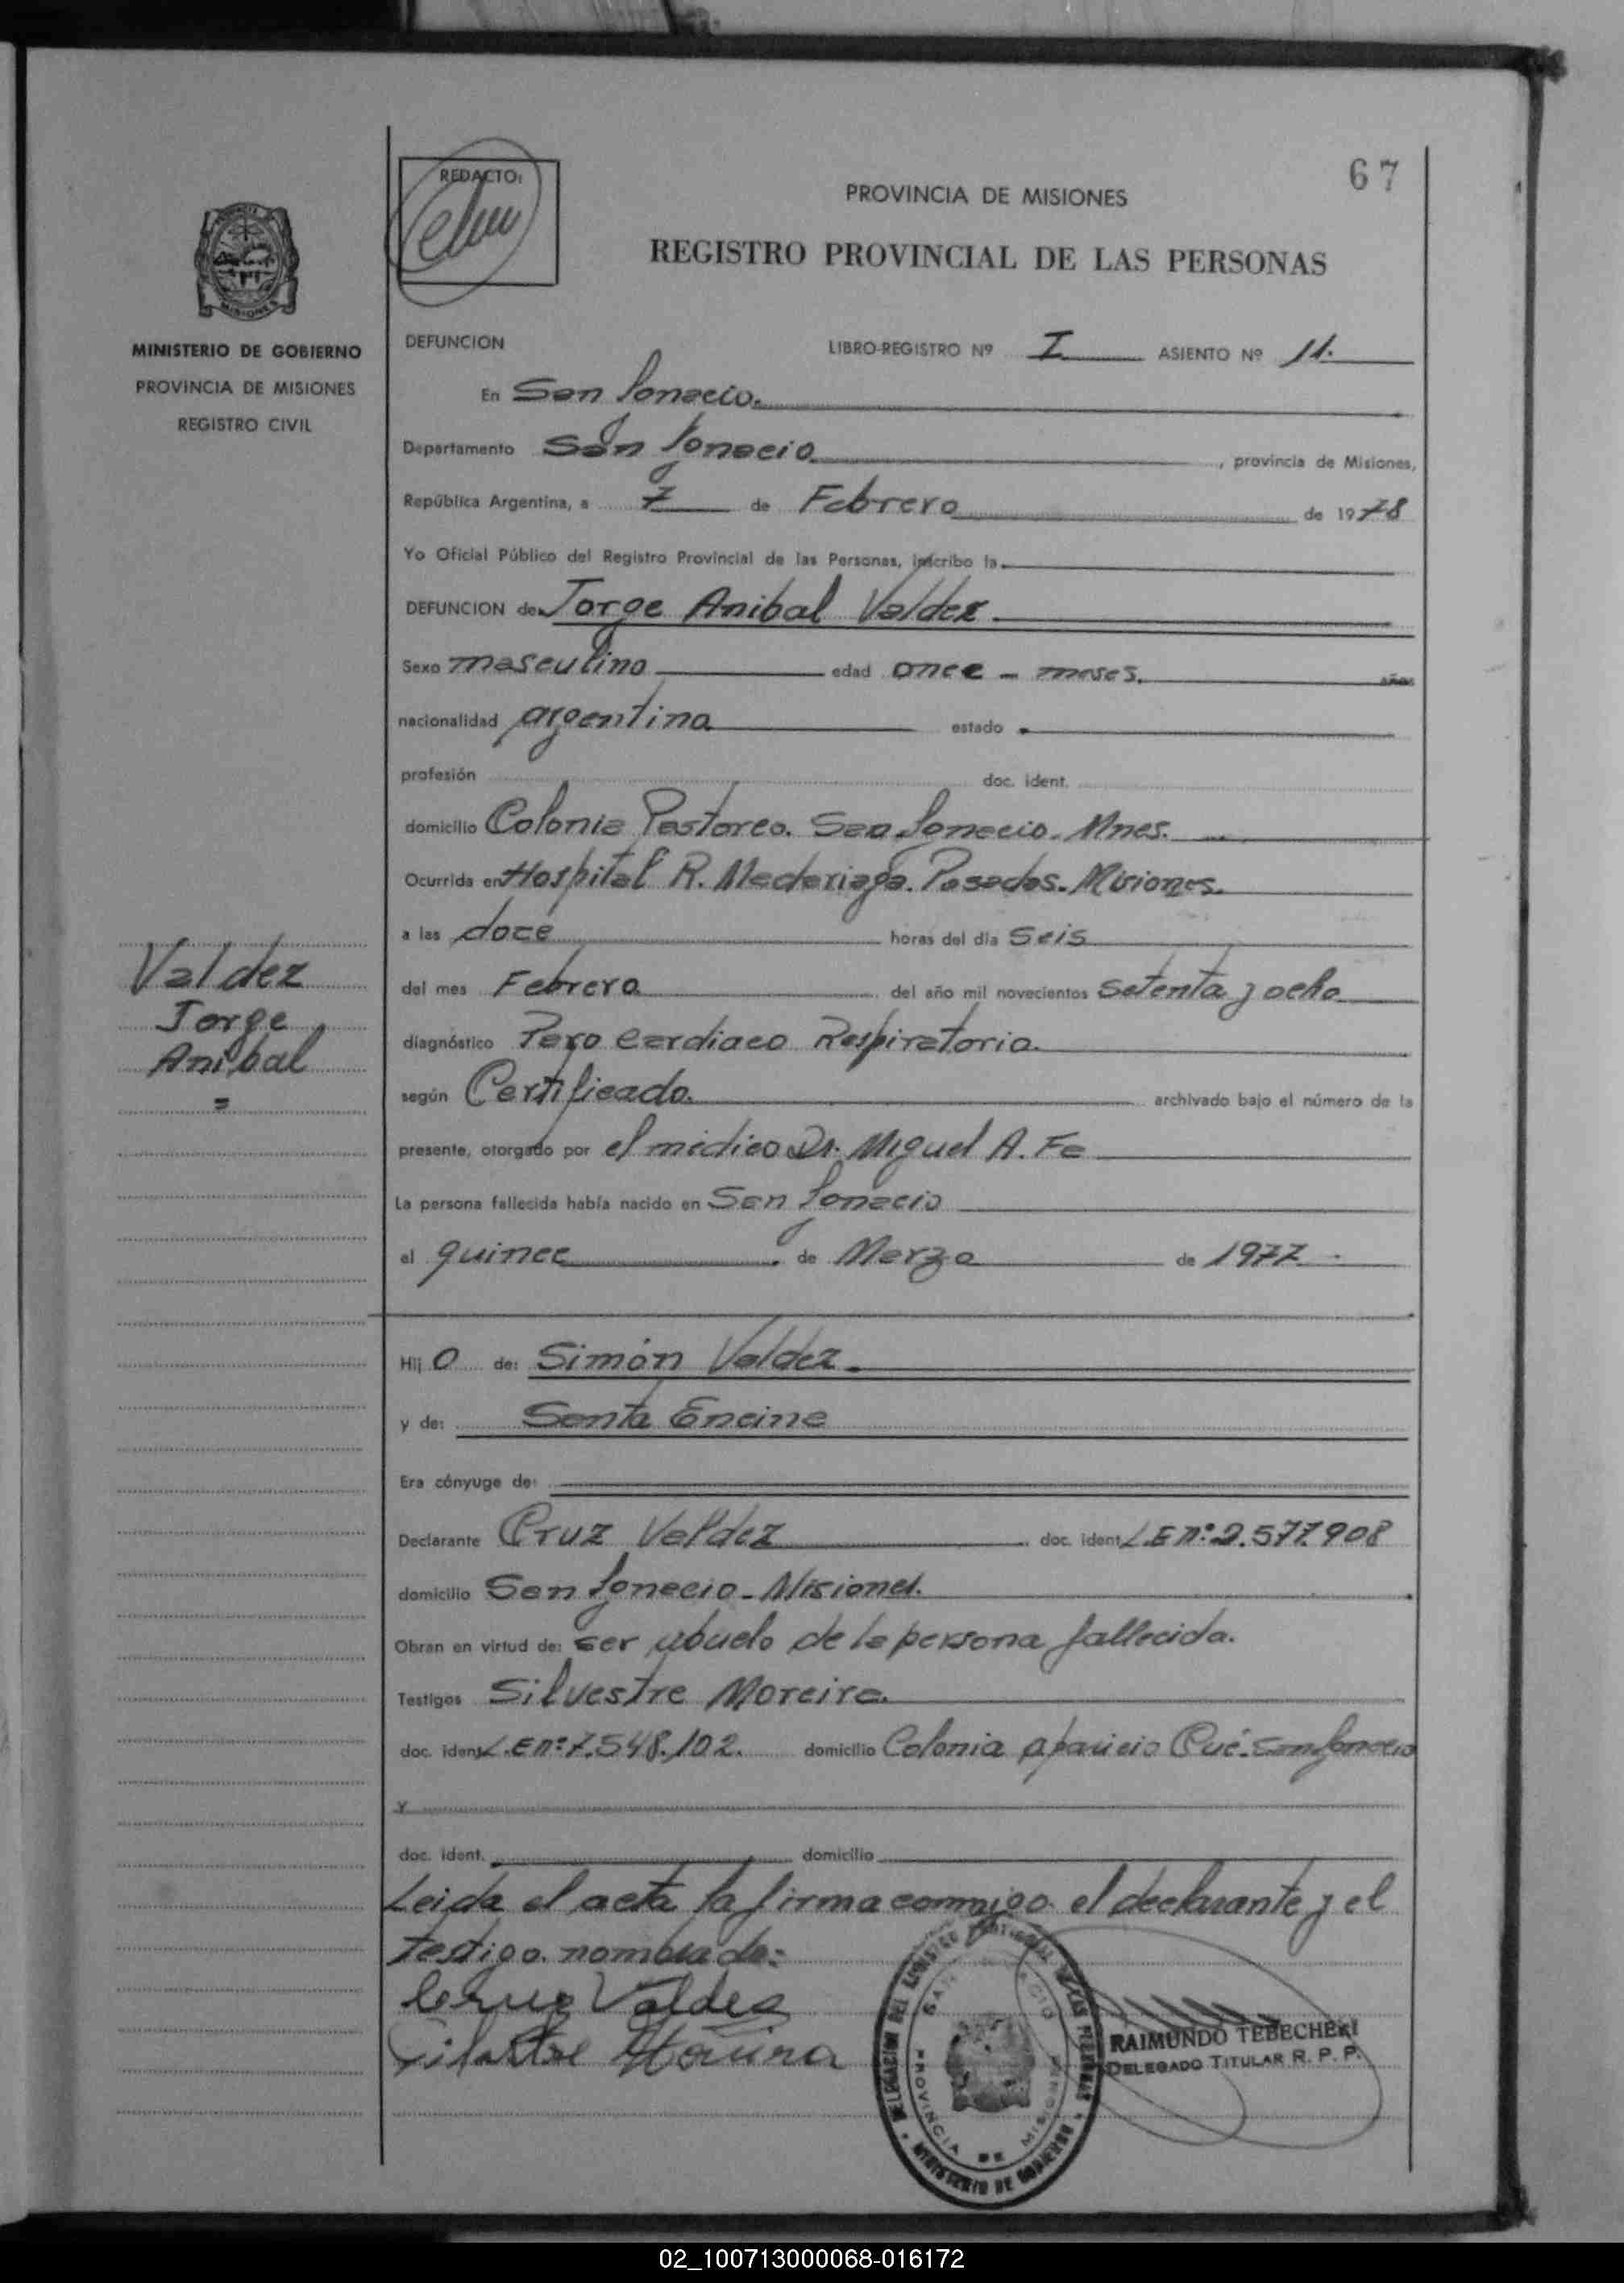 67
REDACTO:
PROVINCIA DE MISIONES
REGISTRO PROVINCIAL DE LAS PERSONAS
MISIONES
MINISTERIO DE GOBIERNO
PROVINCIA DE MISIONES
REGISTRO CIVIL
DEFUNCION LIBRO-REGISTRO Nº I ASIENTO Nº 11.
En San Ignacio.
Departamento San Ignacio, provincia de Misiones,
República Argentina, a 7 de Febrero de 1978
Yo Oficial Público del Registro Provincial de las Personas, inscribo la
DEFUNCION de Jorge Anibal Valdez.
Sexo masculino edad once - meses. años
nacionalidad argentina estado
profesión doc. ident.
domicilio Colonia Pastoreo. San Ignacio. Mnes.
Ocurrida en Hospital R. Madariaga. Posadas. Misiones.
a las doce horas del día seis
del mes Febrero del año mil novecientos setenta y ocho
diagnóstico Paro Cardiaco Respiratorio.
según Certificado. archivado bajo el número de la
presente, otorgado por el médico Dr. Miguel A. Fe
La persona fallecida había nacido en San Ignacio
el quince de Marzo de 1977.
Valdez
Jorge
Anibal
=
Hij o de: Simón Valdez.
y de: Santa Encine
Era cónyuge de:
Declarante Cruz Valdez doc. ident. L.E nº: 2.577.908
domicilio San Ignacio - Misiones.
Obran en virtud de: ser abuelo de la persona fallecida.
Testigos Silvestre Moreira.
doc. ident. L.E nº: 7.548.102. domicilio Colonia aparicio Cué. San Ignacio
y
doc. ident. domicilio
Leida el acta la firma conmigo el declarante y el
testigo nombrado:
Cruz Valdez
RAIMUNDO TEBECHERI
DELEGADO TITULAR R. P. P.
PROVINCIA DE MISIONES
MINISTERIO DE GOBIERNO
02_100713000068-016172